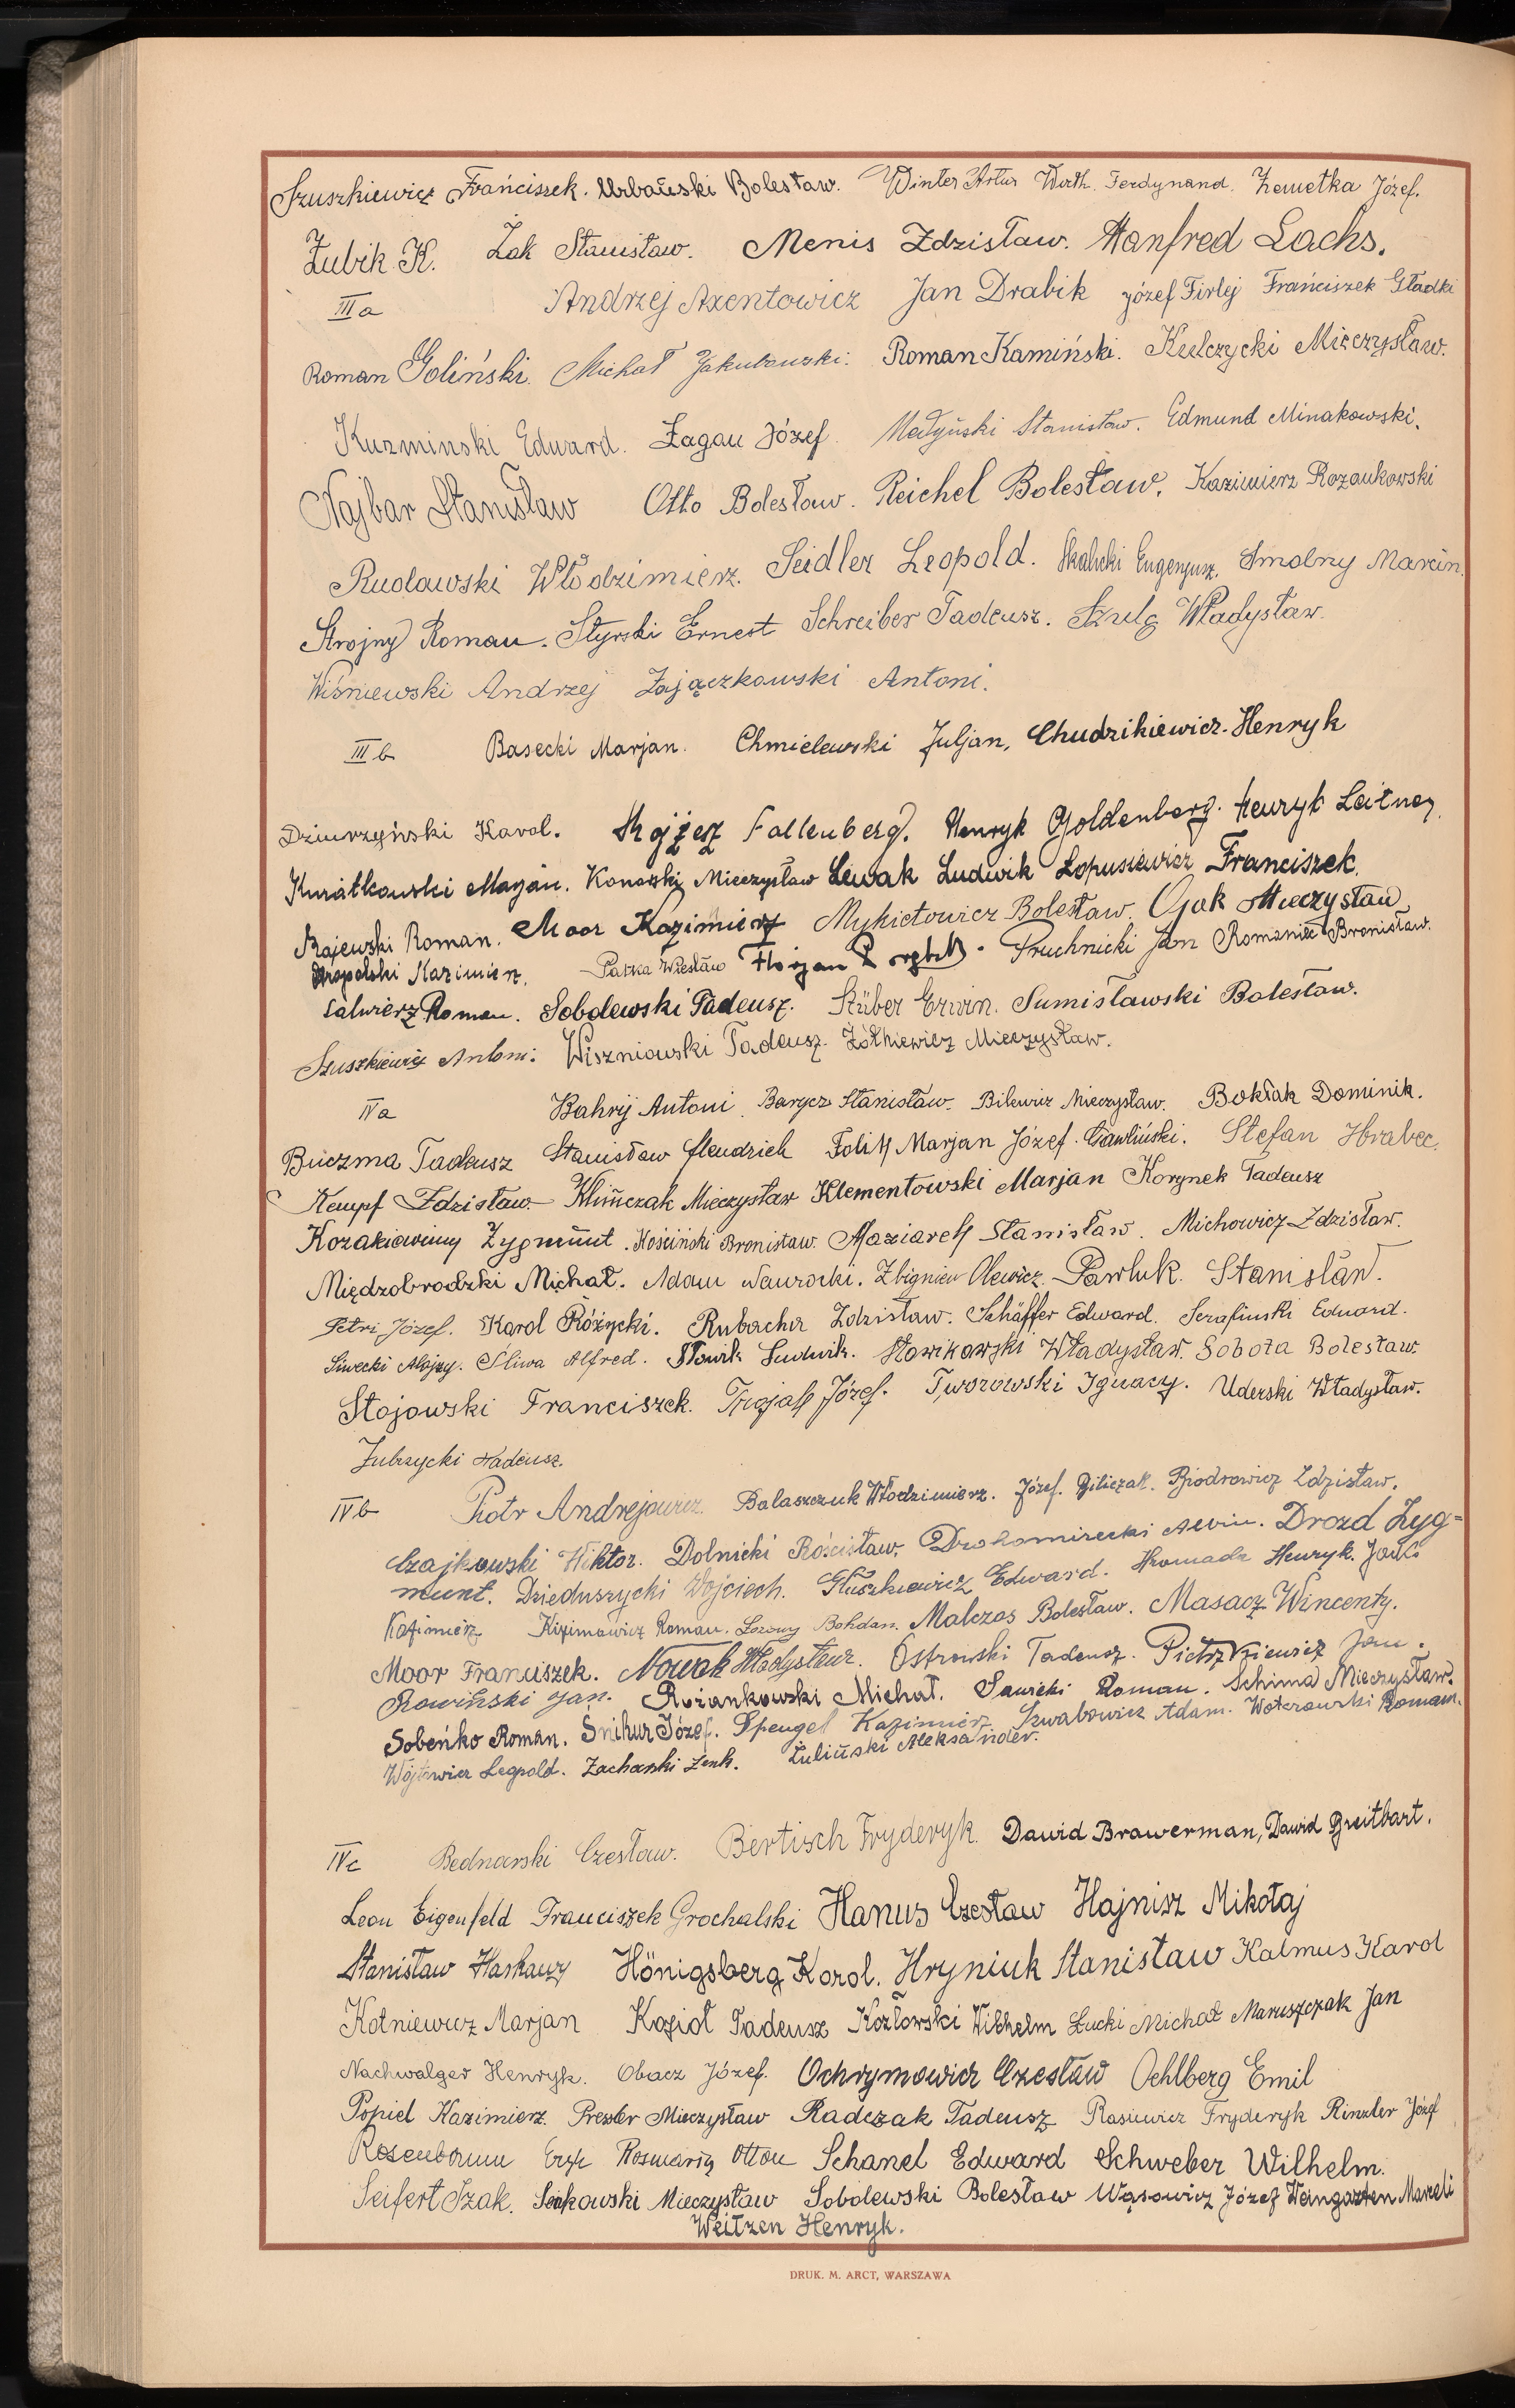 Szuszkiewicz Frańciszek. Urbański Bolesław. Winter Artur Wirth. Ferdynand. Zemetka Józef.
Żubik K. Żak Stanisław. Menis Zdzisław. Manfred Lachs.
IIIa Andrzej Axentowicz Jan Drabik Józef Firlej Frańciszek Gładki
Roman Goliński. Michał Jakubowski. Roman Kamiński. Kulczycki Mieczysław.
Kuzminski Edward. Łagan Józef. Medyński Stanisław. Edmund Minakowski.
Najbar Stanisław Otto Bolesław. Reichel Bolesław. Kazimierz Rozankowski
Rudawski Włodzimierz. Seidler Leopold. Skalicki Eugenjusz. Smolny Marcin.
Strojny Roman. Styrski Ernest Schreiber Tadeusz. Szulc Władysław.
Wiśniewski Andrzej Zajączkowski Antoni.
IIIb Basecki Marjan. Chmielewski Juljan, Chudzikiewicz Henryk
Dziurzyński Karol. Mojżesz Fallenberg. Henryk Goldenberg. Henryk Leitner
Kwiatkowski Marjan. Konarski Mieczysław Lewak Ludwik Łopusiewicz Franciszek.
Majewski Roman. Moor Kazimierz Mykietowicz Bolesław. Ojak Mieczysław
Opolski Kazimierz. Pałka Wiesław Florjan Pruchnicki Jan Romaniec Bronisław.
Salwierz Roman. Sobolewski Tadeusz. Stüber Erwin. Sumisławski Bolesław.
Szuszkiewicz Antoni. Wiszniowski Tadeusz. Żółkiewicz Mieczysław.
IVa Bahrij Antoni. Barycz Stanisław. Bilewicz Mieczysław. Bokłak Dominik.
Buczma Tadeusz Stanisław Hendrich Folih Marjan Józef. Gawliński. Stefan Hrabec.
Kempf Zdzisław. Klimczak Mieczysław Klementowski Marjan Korynek Tadeusz
Kozakiewicz Zygmunt. Kościński Bronisław. Maziarek Stanisław. Michowicz Zdzisław.
Międzobrodzki Michał. Adam Nawrocki. Zbigniew Olewicz. Pawluk. Stanisław.
Petri Józef. Karol Różycki. Rubacha Zdzisław. Schäffer Edward. Serafiński Edward.
Siwecki Alojzy. Śliwa Alfred. Słowik Ludwik. Słowikowski Władysław. Sobota Bolesław.
Stojowski Franciszek. Trojak Józef. Tworowski Ignacy. Uderski Władysław.
Zubrzycki Tadeusz.
IVb Piotr Andrejowicz. Balaszczuk Włodzimierz. Józef. Biliczak. Biodrowicz Zdzisław.
Czajkowski Wiktor. Dolnicki Rościsław. Drohomirecki Alwin. Drozd Zyg=
munt. Dzieduszycki Wojciech. Głuszkiewicz Edward. Hromada Henryk. Jouk.
Kazimierz Kizimowicz Roman. Łozowy Bohdan. Malczos Bolesław. Masacz Wincenty.
Moor Franciszek. Nowak Władysław. Ostrowski Tadeusz. Pietrzkiewicz Jan.
Rowiński Jan. Rożankowski Michał. Sawicki Roman. Schima Mieczysław.
Sobeńko Roman. Snihur Józef. Spengel Kazimierz. Szwabowicz Adam. Woterowski Roman.
Wójtowicz Leopold. Zacharski Zenh. Żuliński Aleksander.
IVc Bednarski Czesław. Bertisch Fryderyk. Dawid Brawerman, Dawid Breitbart.
Leon Eigenfeld Franciszek Grochalski Hanus Czesław Hajnisz Mikołaj
Stanisław Harkawy Hönigsberg Karol. Hryniuk Stanisław Kalmus Karol
Kotniewicz Marjan Kozioł Tadeusz Kozłowski Wilhelm Łucki Michał Maruszczak Jan
Nachwalger Henryk. Obacz Józef. Ochrymowicz Czesław Oehlberg Emil
Popiel Kazimierz. Pressler Mieczysław Radczak Tadeusz Rasiewicz Fryderyk Rinzler Józef
Rosenbaum Eryk Rosmarin Otton Schanel Edward Schweber Wilhelm.
Seifert Izak. Siakowski Mieczysław Sobolewski Bolesław Wąsowicz Józef Weingarten Marceli
Weitzen Henryk.
DRUK. M. ARCT, WARSZAWA